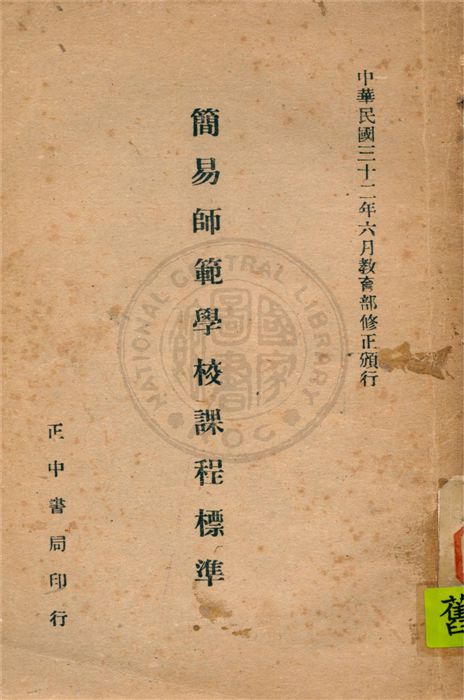 中華民國三十二年六月教育部修正頒行
簡易師範學校課程標準
正中書局印行
NATIONAL CENTRAL LIBRARY
國家圖書館
舊